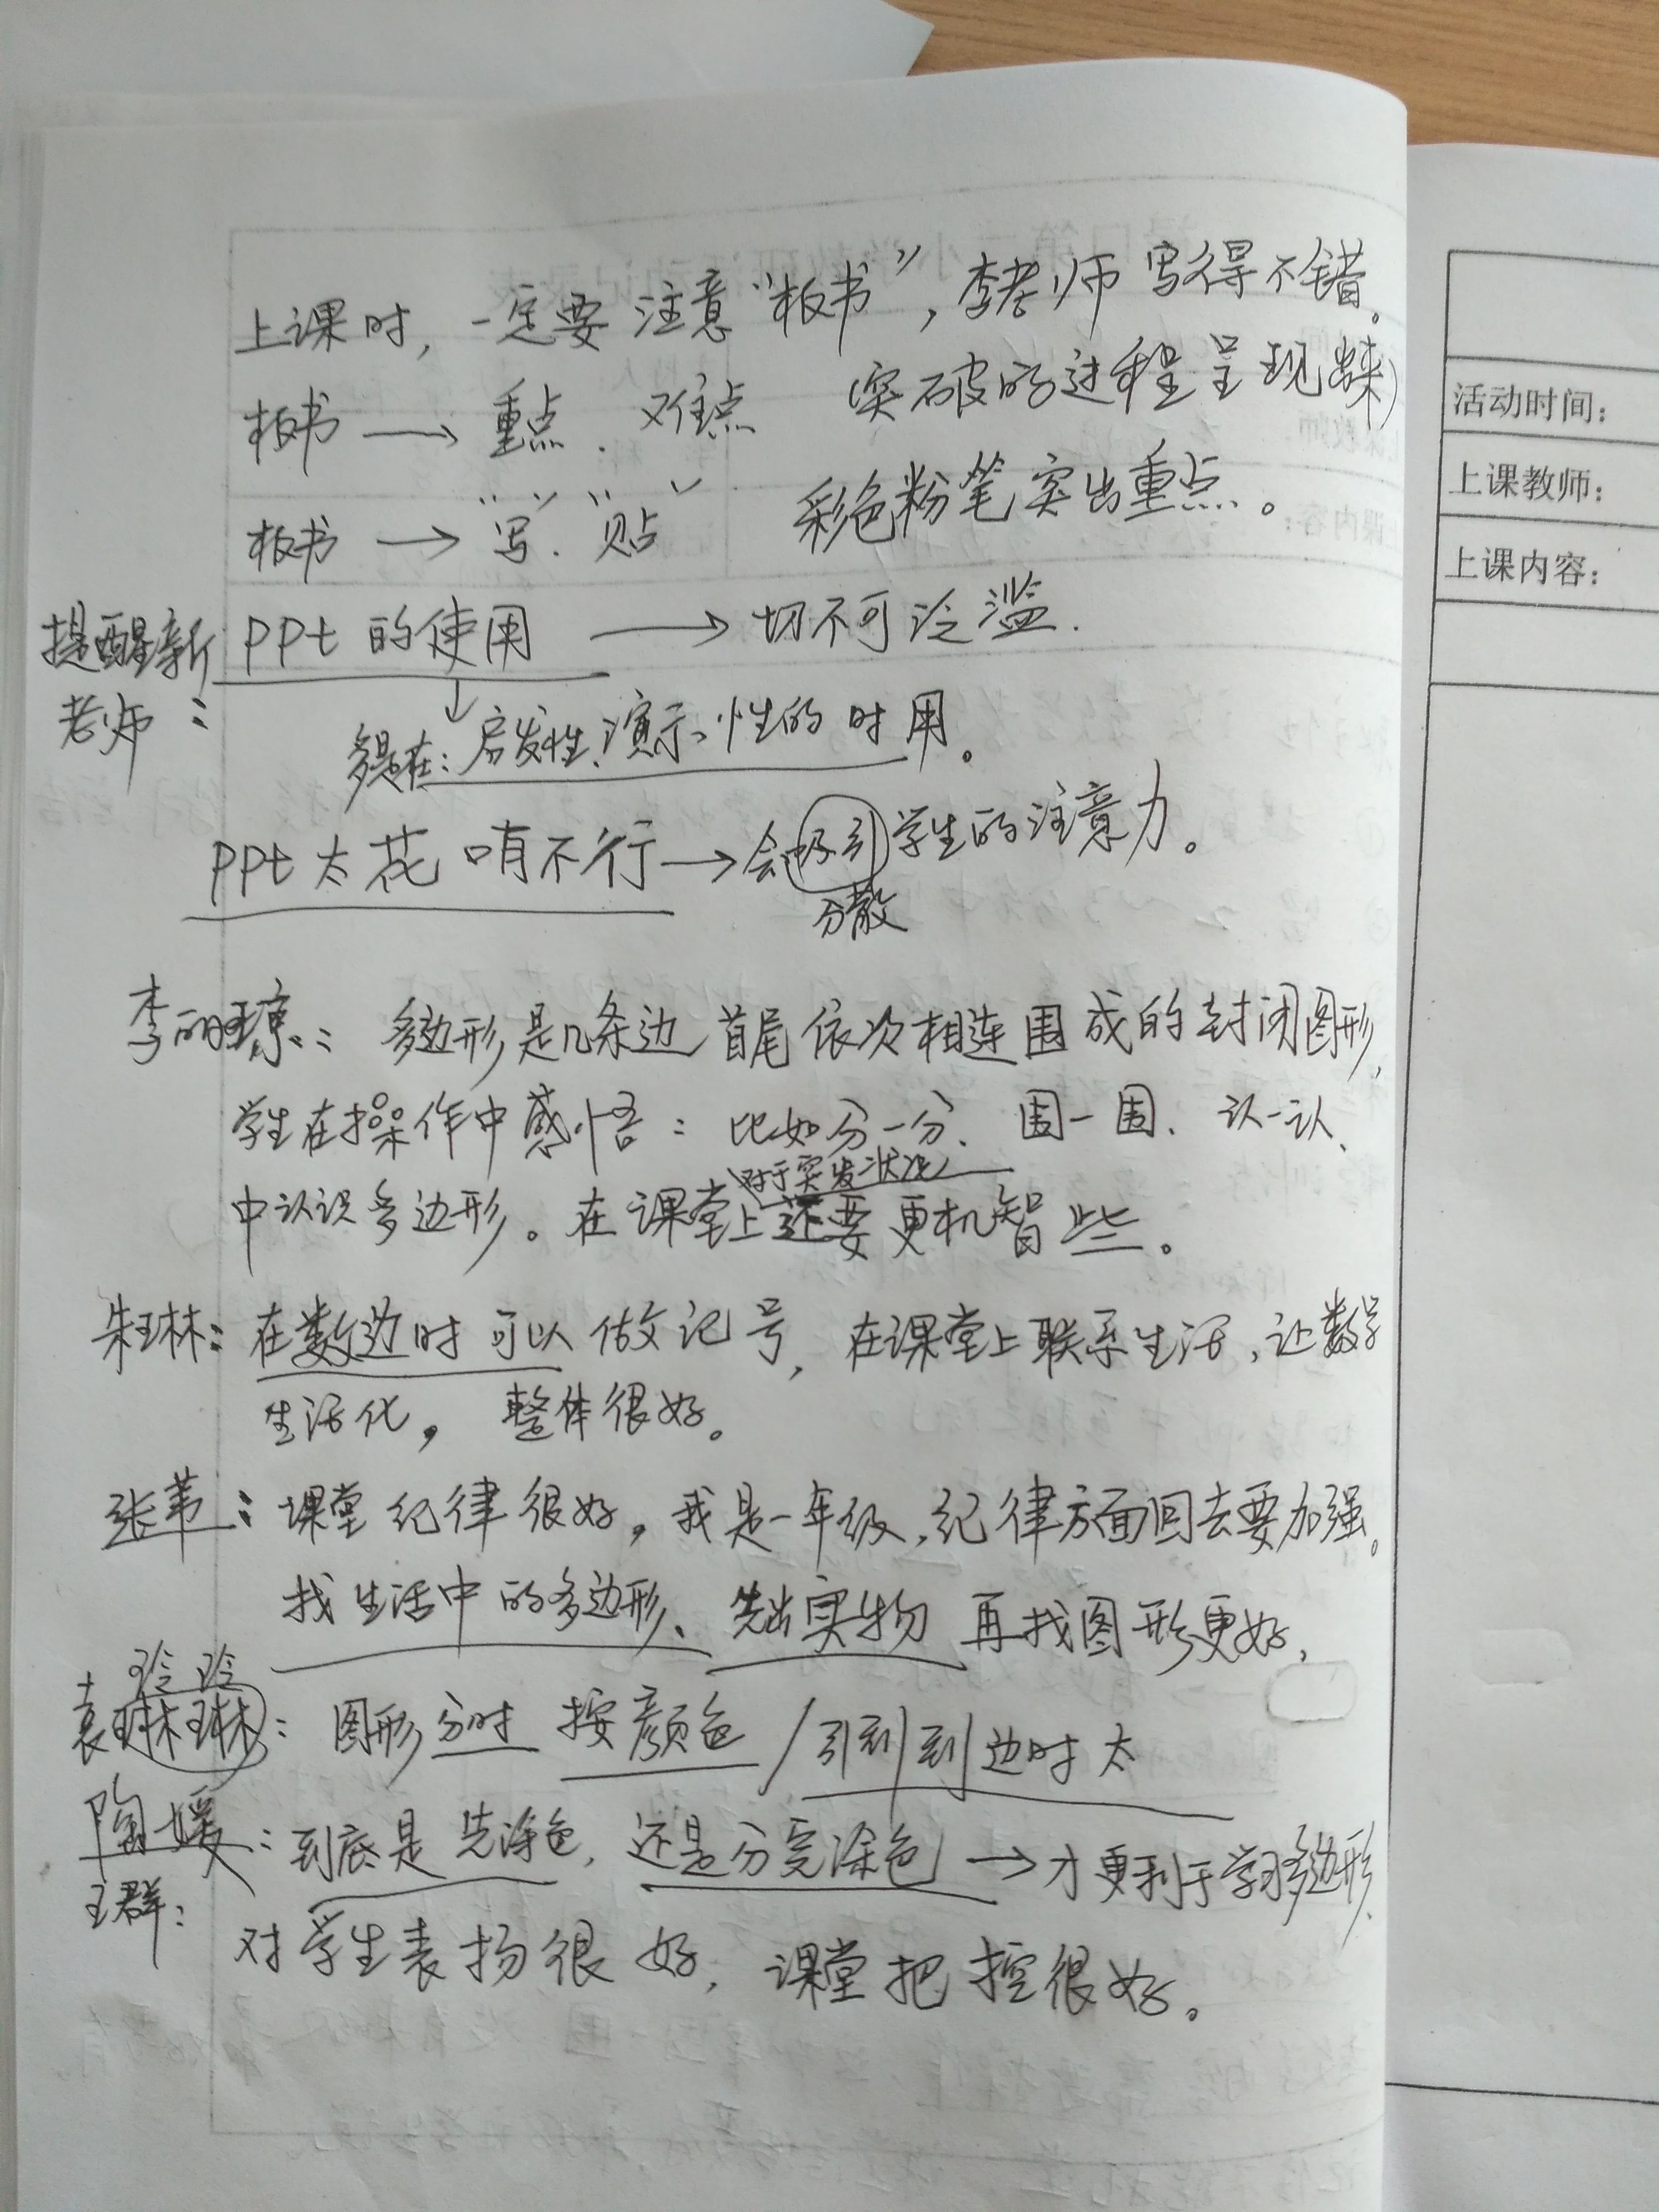 上课时，一定要注意“板书”，李老师写得不错。
板书 → 重点、难点 突破的过程呈现出来)
板书 → “写”、“贴” 彩色粉笔突出重点。
提醒新
老师：
ppt的使用 → 切不可泛滥.
↓
多是在：启发性、演示性的时用。
ppt太花哨不行 → 会吸引学生的注意力。
分散
李丽琼：多边形是几条边首尾依次相连围成的封闭图形，
学生在操作中感悟：比如分一分、围一围、认一认、
对于突发状况
中认识多边形。在课堂上还要更机智些。
朱琳：在数边时可以做记号，在课堂上联系生活，让数学
生活化，整体很好。
张苇：课堂纪律很好，我是一年级，纪律方面回去要加强。
找生活中的多边形、先出实物再找图形更好，
玲玲
袁琳琳：图形分时按颜色/引到到边时太
陶媛：到底是先涂色，还是分完涂色 → 才更利于学习多边形.
王群：
对学生表扬很好，课堂把控很好。
活动时间：
上课教师：
上课内容：